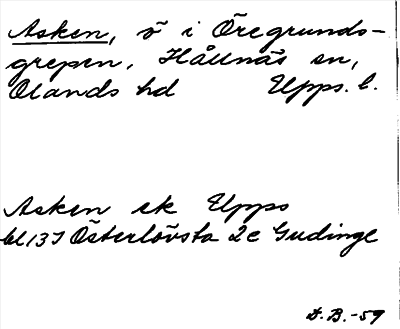 Asken, ö i Öregrunds-
grepen, Hållnäs sn,
Olands hd Upps. l.
Asken ek Upps
bl 137 Österlövsta 2c Gudinge
D.B.-59